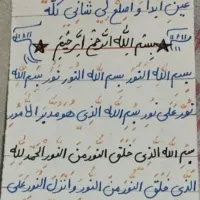 عين أبدا واصلح لي شأني كله
بسم الله الرحمن الرحيم
بسم الله النور بسم الله النور نور بسم الله
نور على نور بسم الله الذي هو مدبر الأمور
بسم الله الذي خلق النور من النور الحمد لله
الذي خلق النور من النور وأنزل النور على